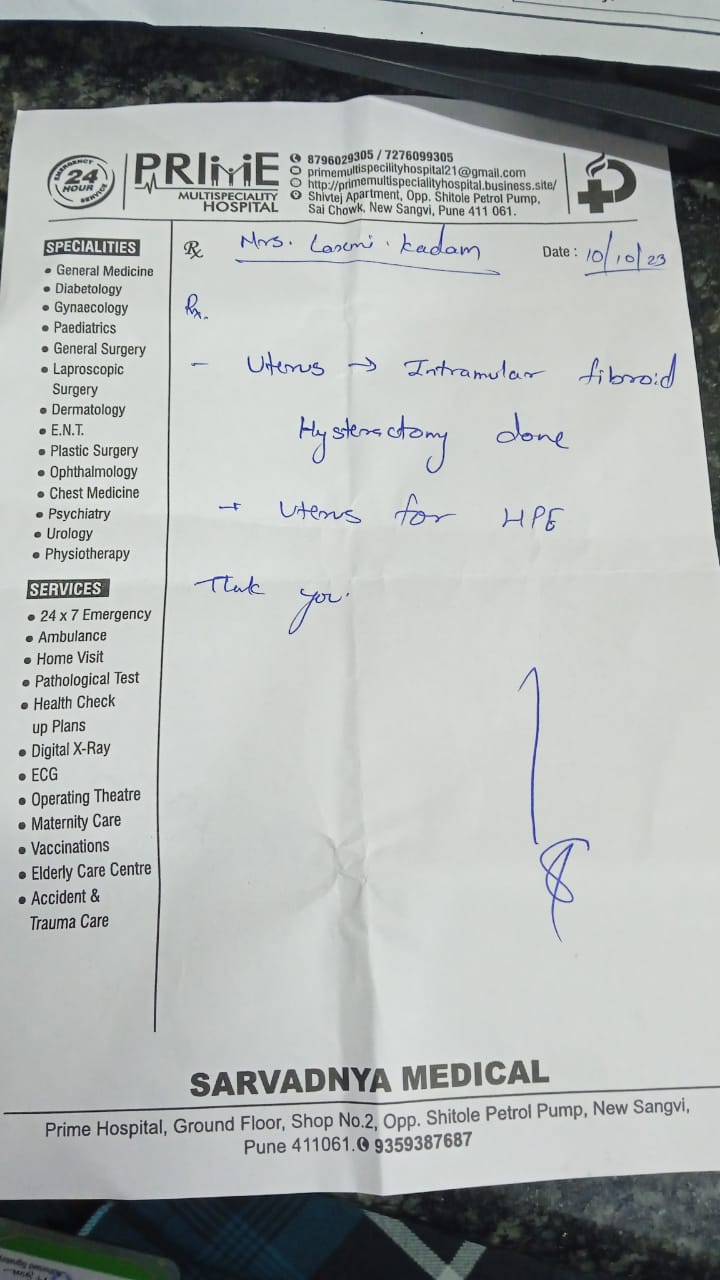 EMERGENCY
24
HOUR
SERVICE
PRIME
MULTISPECIALITY
HOSPITAL
8796029305 / 7276099305
primemultispecilityhospital21@gmail.com
http://primemultispecialityhospital.business.site/
Shivtej Apartment, Opp. Shitole Petrol Pump,
Sai Chowk, New Sangvi, Pune 411 061.
℞ Mrs. Laxmi. Kadam Date : 10/10/23
Rx.
- Uterus → Intramular fibroid
Hysterectomy done
→ Uterus for HPE
Thnk you.
SPECIALITIES
• General Medicine
• Diabetology
• Gynaecology
• Paediatrics
• General Surgery
• Laproscopic
Surgery
• Dermatology
• E.N.T.
• Plastic Surgery
• Ophthalmology
• Chest Medicine
• Psychiatry
• Urology
• Physiotherapy
SERVICES
• 24 x 7 Emergency
• Ambulance
• Home Visit
• Pathological Test
• Health Check
up Plans
• Digital X-Ray
• ECG
• Operating Theatre
• Maternity Care
• Vaccinations
• Elderly Care Centre
• Accident &
Trauma Care
SARVADNYA MEDICAL
Prime Hospital, Ground Floor, Shop No.2, Opp. Shitole Petrol Pump, New Sangvi,
Pune 411061. 9359387687